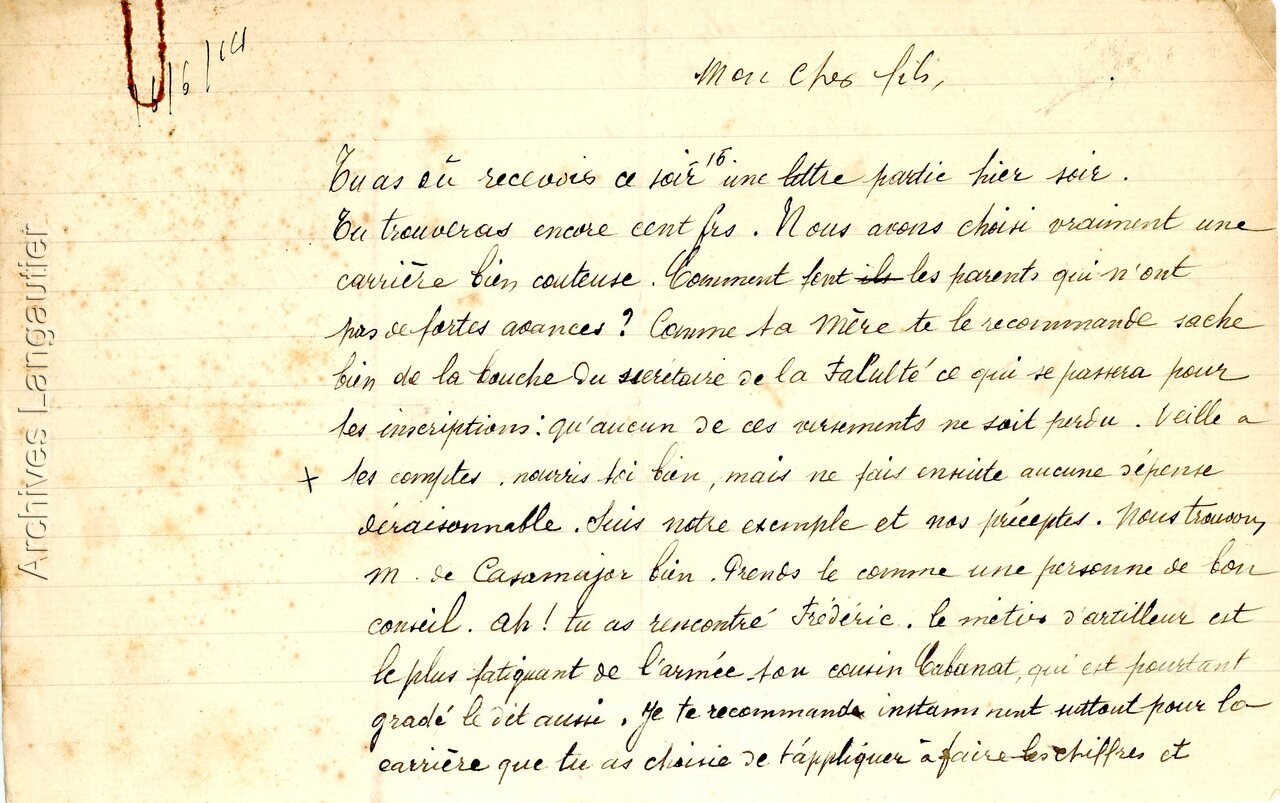 16/6/14
Mon cher fils,
Tu as dû recevoir ce soir 15 une lettre partie hier soir.
Tu trouveras encore cent frs. Nous avons choisi vraiment une
carrière bien couteuse. Comment font ils les parents qui n'ont
pas de fortes avances ? Comme ta Mère te le recommande sache
bien de la bouche du secrétaire de la Faculté ce qui se passera pour
tes inscriptions : qu'aucun de ces versements ne soit perdu. Veille a
+ tes comptes. nourris toi bien, mais ne fais ensuite aucune dépense
déraisonnable. Suis notre exemple et nos préceptes. Nous trouvons
M. de Casamajor bien. Prends le comme une personne de bon
conseil. Ah ! tu as rencontré Frédéric. le métier d'artilleur est
le plus fatiguant de l'armée ton cousin Cabanat, qui est pourtant
gradé le dit aussi. Je te recommande instamment surtout pour la
carrière que tu as choisie de t'appliquer à faire les chiffres et
Archives Langautier